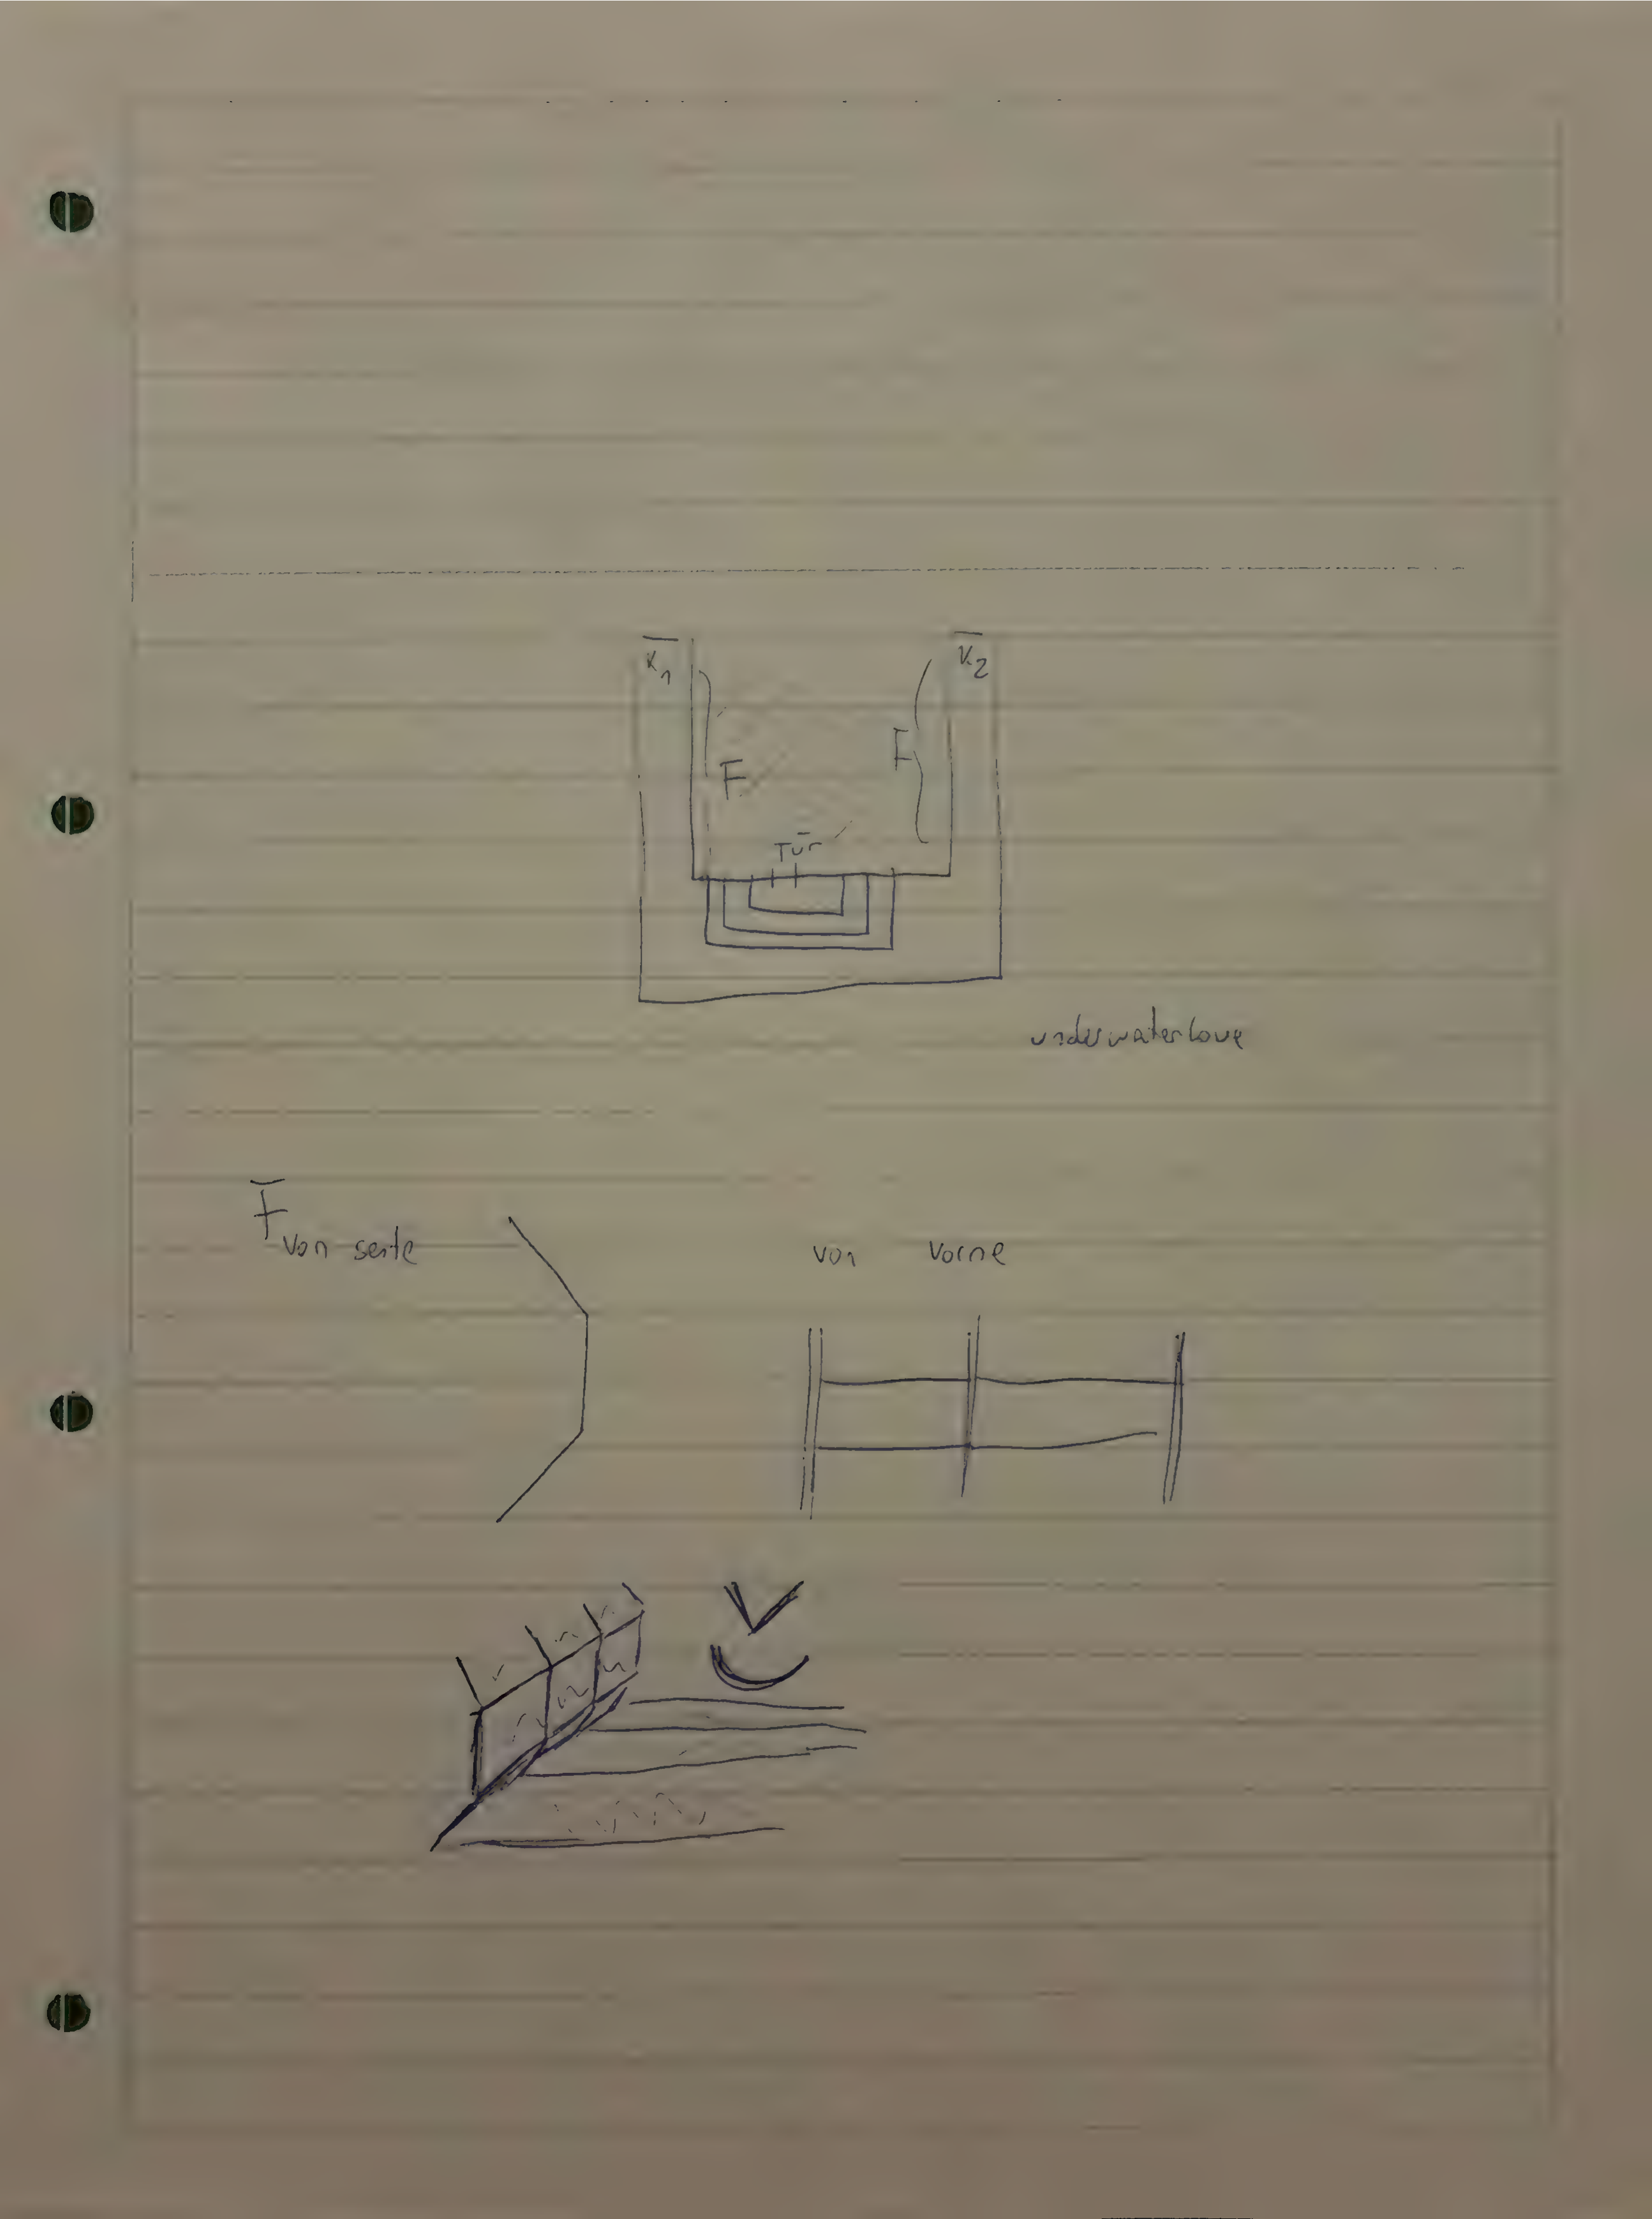 K1
K2
F
F
Tür
underwaterlove
F
von seite
von vorne